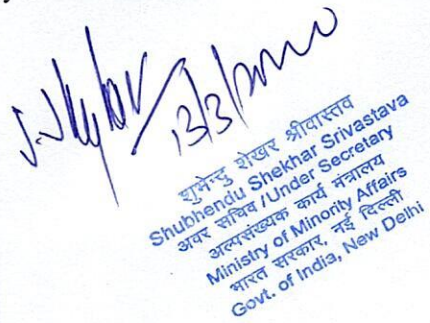 13/3/2020
शुभेन्दु शेखर श्रीवास्तव
Shubhendu Shekhar Srivastava
अवर सचिव / Under Secretary
अल्पसंख्यक कार्य मंत्रालय
Ministry of Minority Affairs
भारत सरकार, नई दिल्ली
Govt. of India, New Delhi